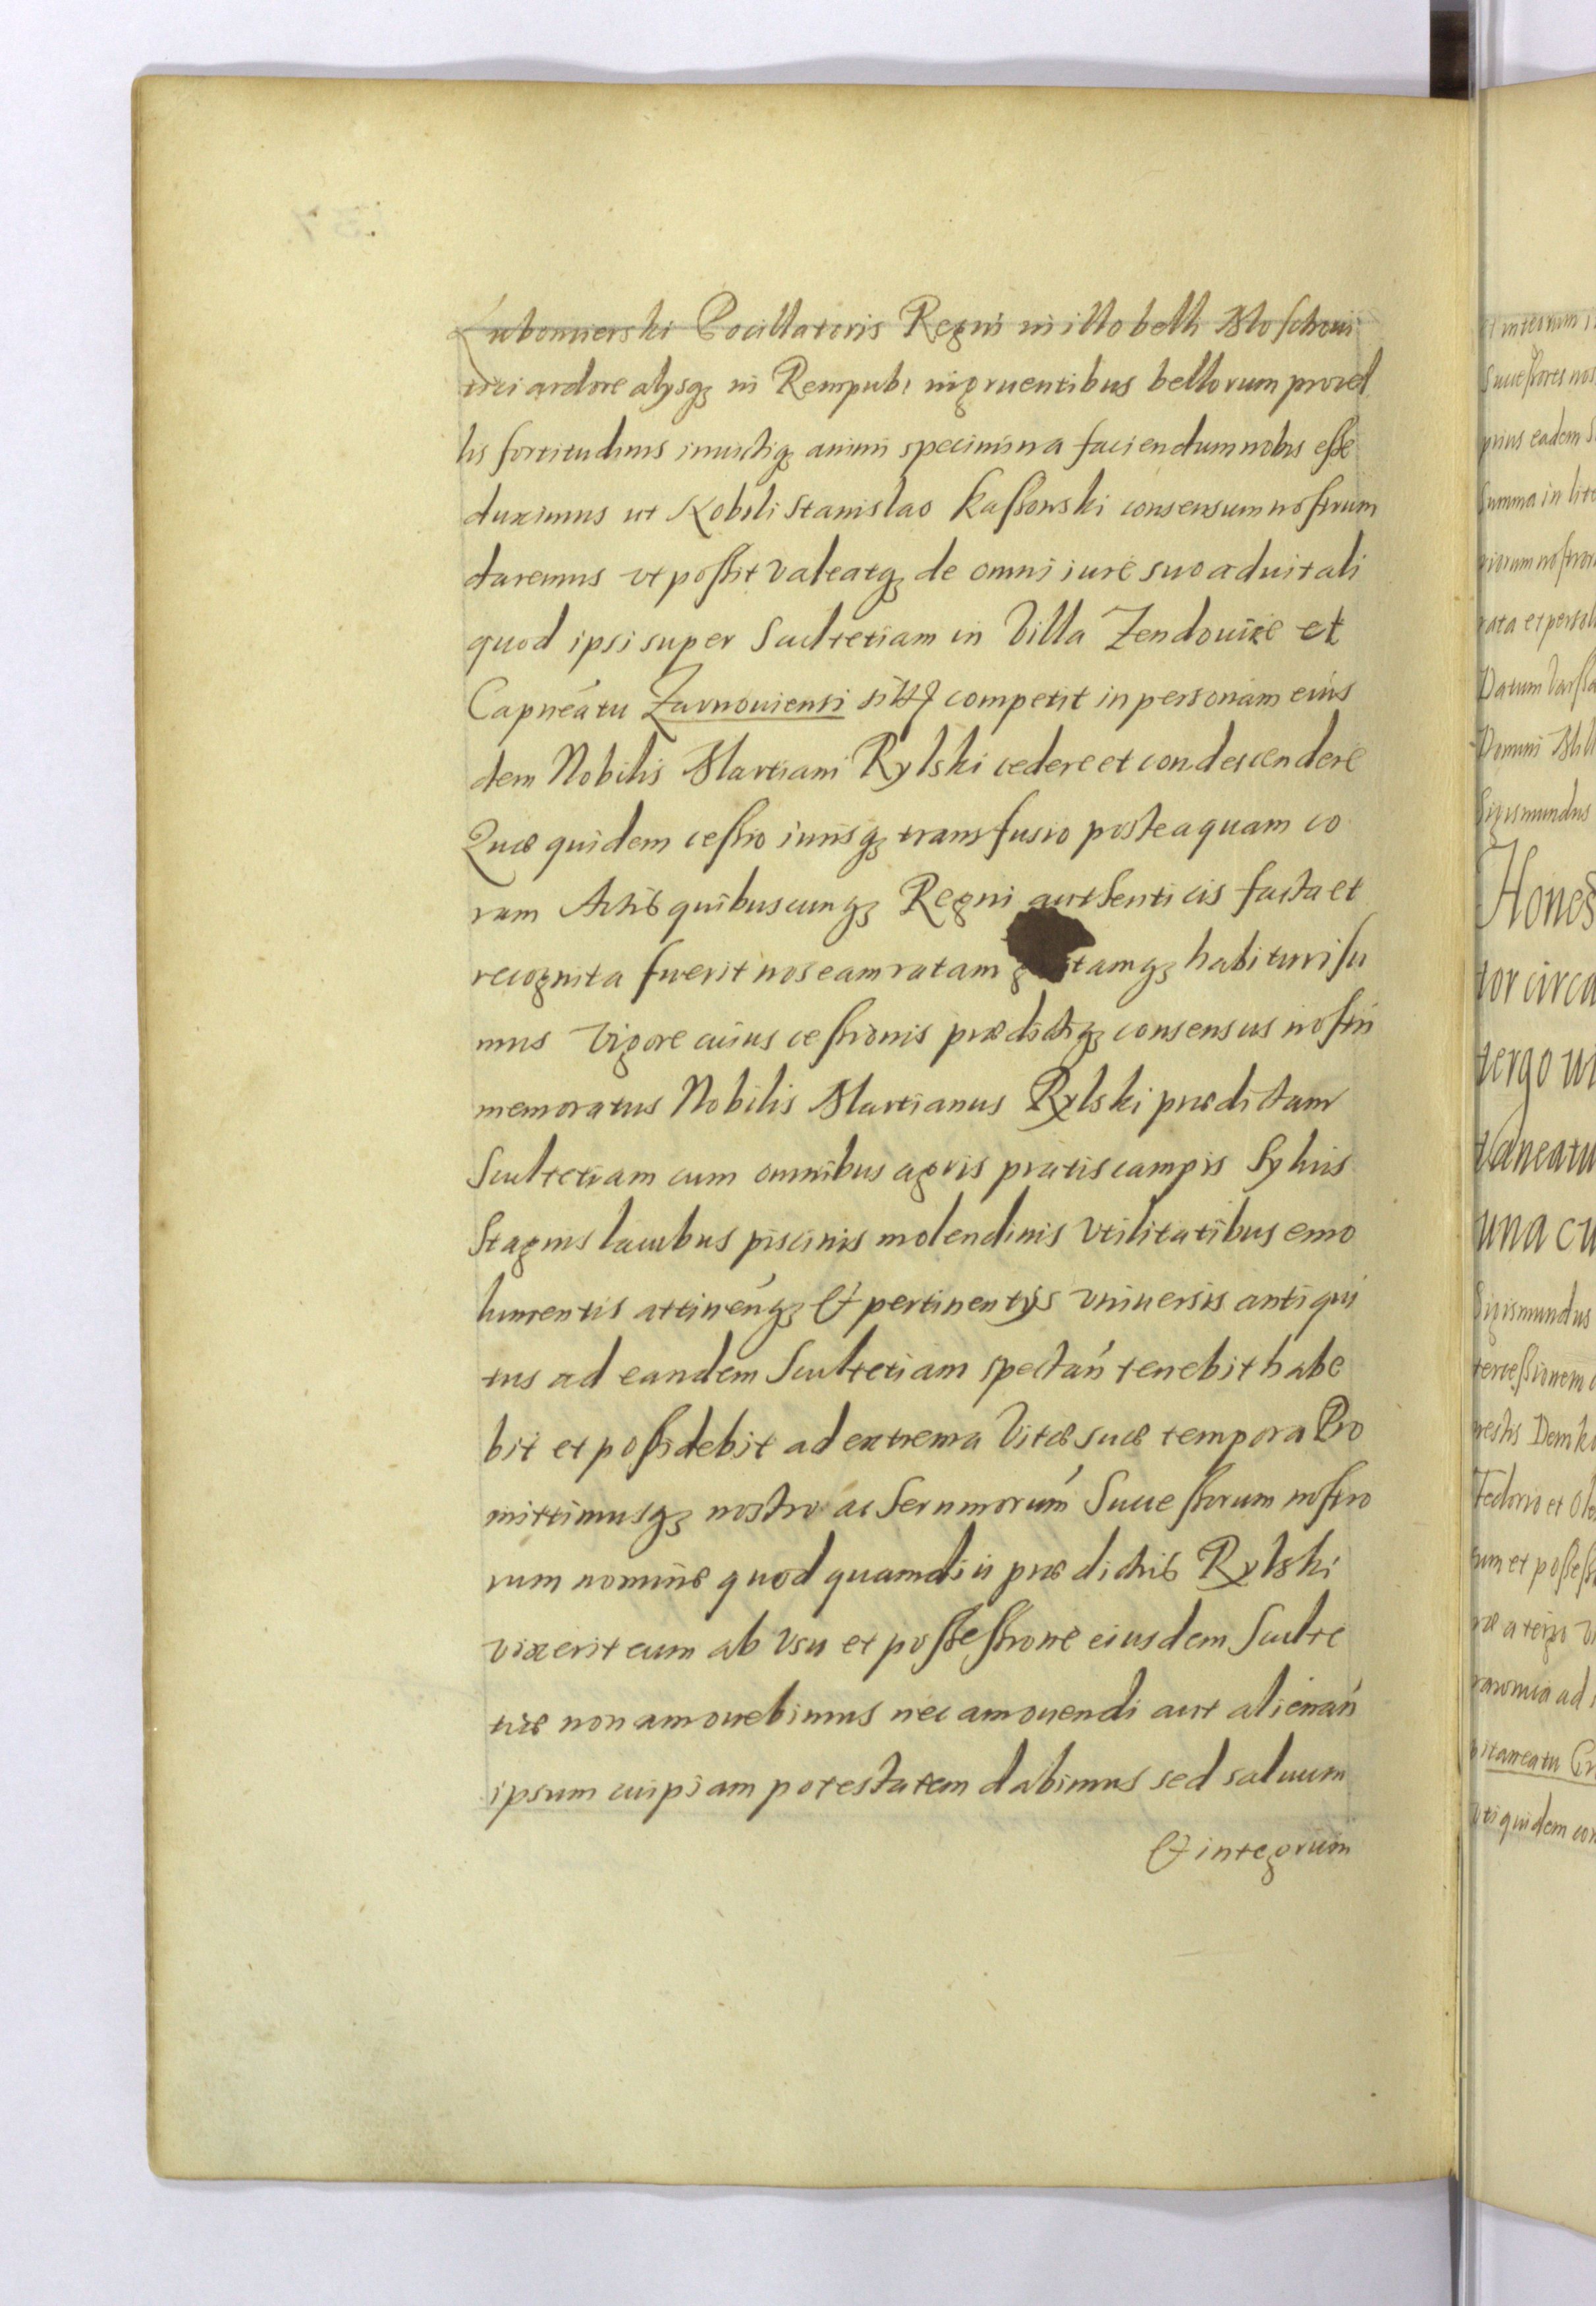 Lubomierski Pocillatoris Regni in illo belli Moschoui
tici ardore alysq3 in Rempub: ingruentibus bellorum procel
lis fortitudinis inuictiq3 animi specimina faciendum nobis esse
duximus ut Nobili Stanislao Kassowski consensum nostrum
daremus vt possit valeatq3 de omni iure suo aduitali
quod ipsi super Scultetiam in Villa Zendouice et
Capneátu Zarnouiensi competit in personam eius
dem Nobilis Martiani Rylski cedere et condescendere
Quæ quidem cessio iurisq3 transfusio posteaquam co
ram Actis quibuscunq3 Regni authenticis facta et
recognita fuerit nos eam ratam g tamq3 habituri su
mus Vigore cuius cessionis prædictiq3 consensus nostri
memoratus Nobilis Martianus Rylski prædictam
Scultetiam cum omnibus agris pratis campis Syluis
Stagnis lacubus piscinis molendinis vtilitatibus emo
lumentis attineńq3 & pertinentijs vniuersis antiqui
tus ad eandem Scultetiam spectań tenebit habe
bit et possidebit ad extrema Vitæ suæ tempora Pro
mittimusq3 nostro ac Sernmorum Successorum nostro
rum nomine quod quamdiu prædictus Rylski
vixerit eum ab vsu et possessione eiusdem Sculte
tiæ non amouebimus nec amouendi aut alienań
ipsum cuipiam potestatem dabimus sed saluum
& integrum
et integrum
Successores nos
prius eadem S
Summa in lite
rata et persol
Datum Varsa
Sigismundus
Hones
tor circa
tergo ui
taneatu
una cu
Sigismundus
tercessionem
nestis Demko
Fedorio et Ole
sum et possessi
bitaneatu
vti quidem con